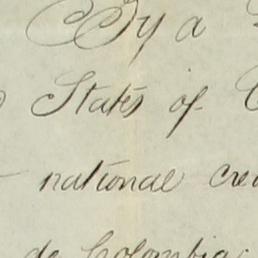 By a
States of
national cre
de Colombia;